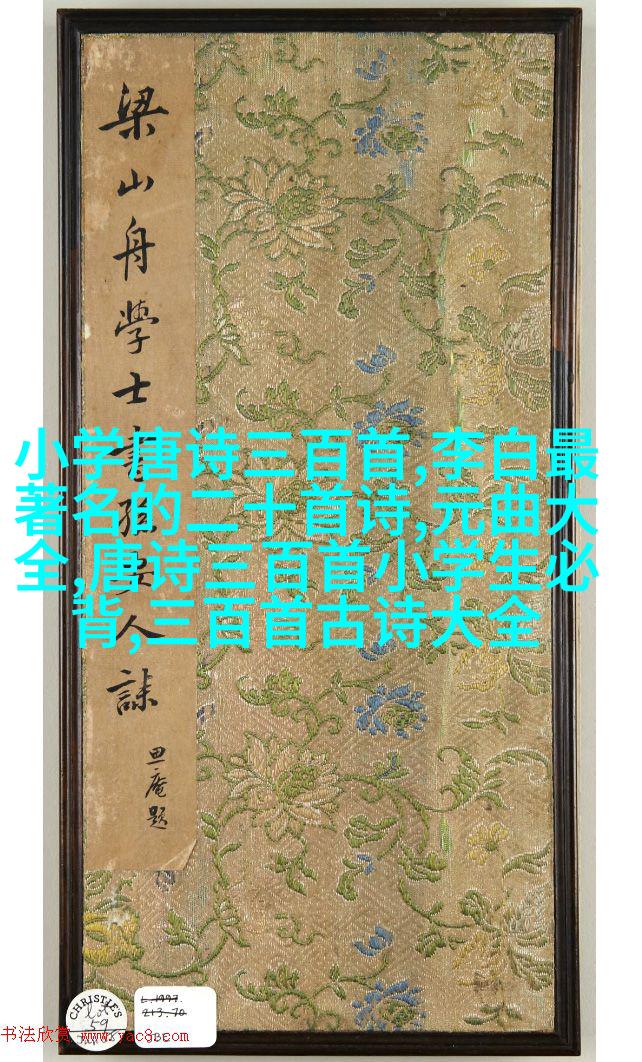 梁山舟學士書孫安人誄
庵題
小学唐诗三百首,李白最
著名的二十首诗,元曲大
全,唐诗三百首小学生必
背,三百首古诗大全
CHRISTIE'S
lot
59
L.1997.
213.70
书法欣赏 www.yac8.com